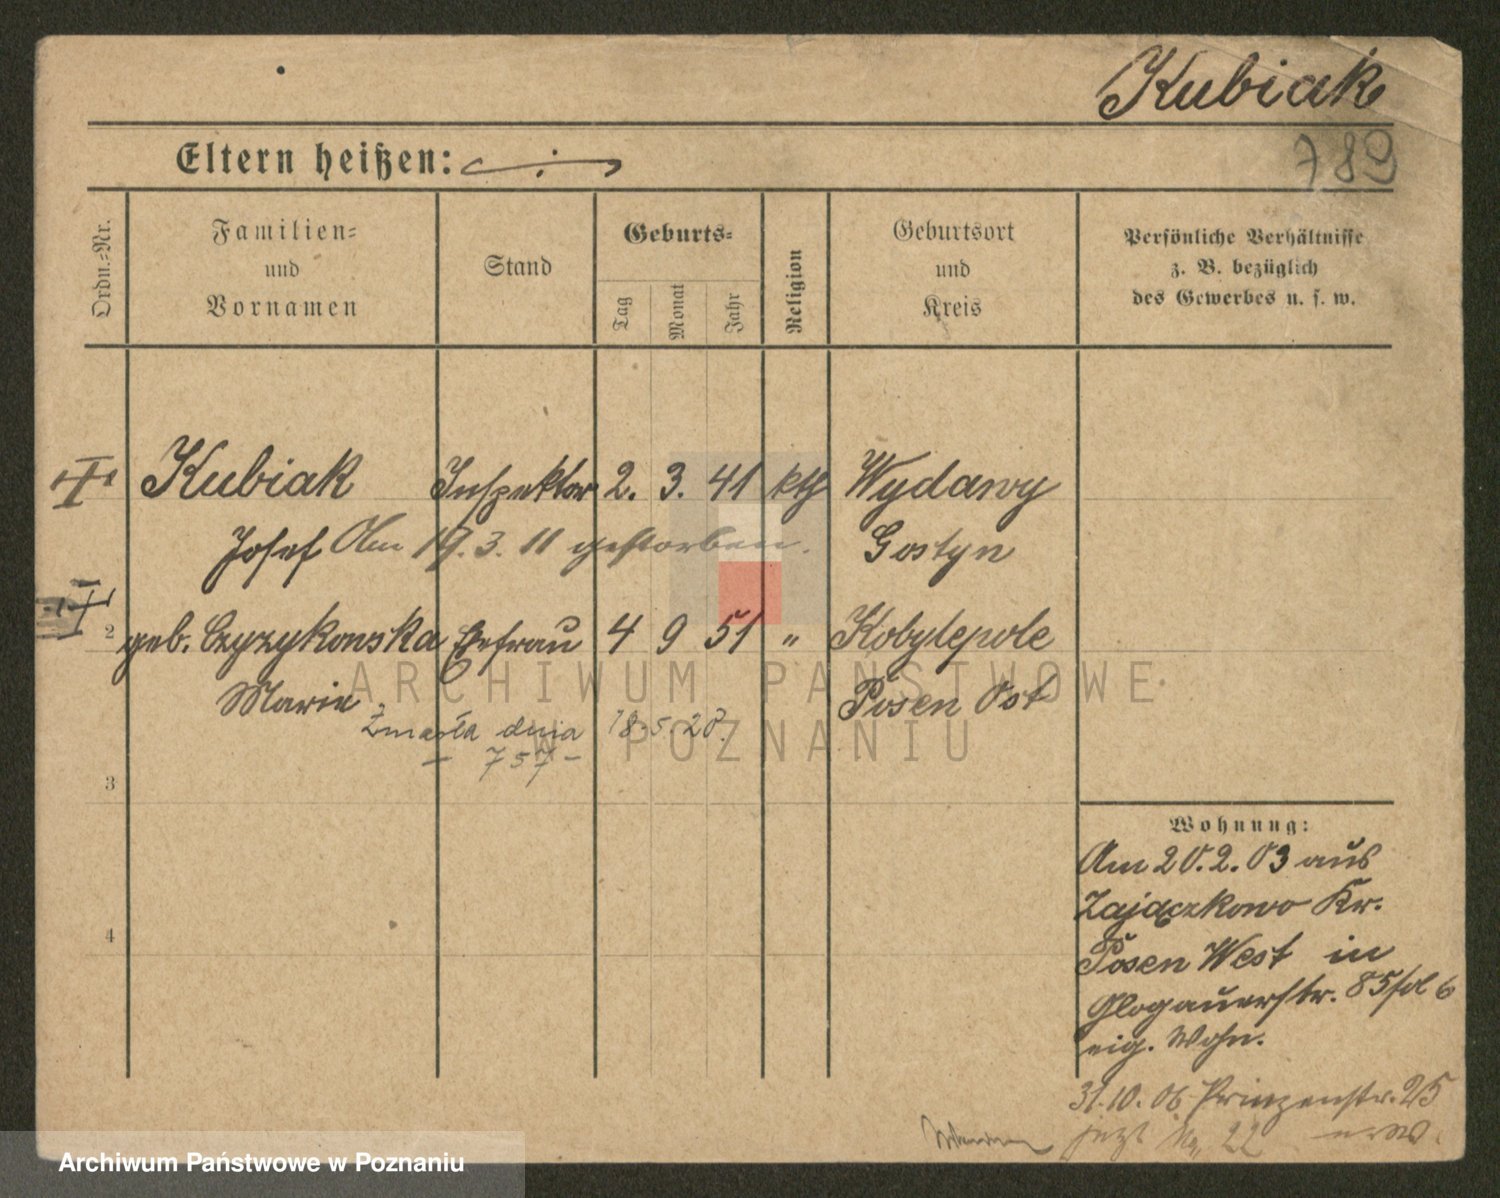 Kubiak
789
Eltern heißen:
Ordn.-Nr.
Familien=
und
Vornamen
Stand
Geburts=
Tag
Monat
Jahr
Religion
Geburtsort
und
Kreis
Persönliche Verhältnisse
z. B. bezüglich
des Gewerbes u. s. w.
Kubiak Inspektor 2. 3. 41 kth Wydawy
Josef Am 19. 3. 11 gestorben. Gostyn
2 geb. Czyzykowska Ehefrau 4 9 51 " Kobylepole
Marie Posen Ost
Zmarła dnia 18.5.20.
– 757 –
3
4
Wohnung:
Am 20.2.03 aus
Zajączkowo Kr.
Posen West in
Glogauerstr. 85 fol 6
eig. Wohn.
31.10.06 Prinzenstr. 25
jezt No 22
ARCHIWUM PAŃSTWOWE
W POZNANIU
Archiwum Państwowe w Poznaniu